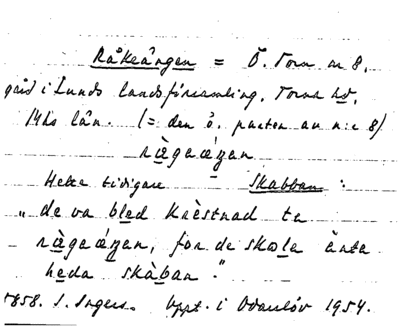 Råkeängen = Ö. Torn nr 8,
gård i Lunds landsförsamling, Torna hd,
Mhs län. (= den ö. parten av n:r 8)
rågeáŋan
Hette tidigare Skabban:
„de va bled kræstnad te
rågeáŋan, for de skole ànte
heda skàban."
1858. I. Ingers. Uppt. i Odarslöv 1954.